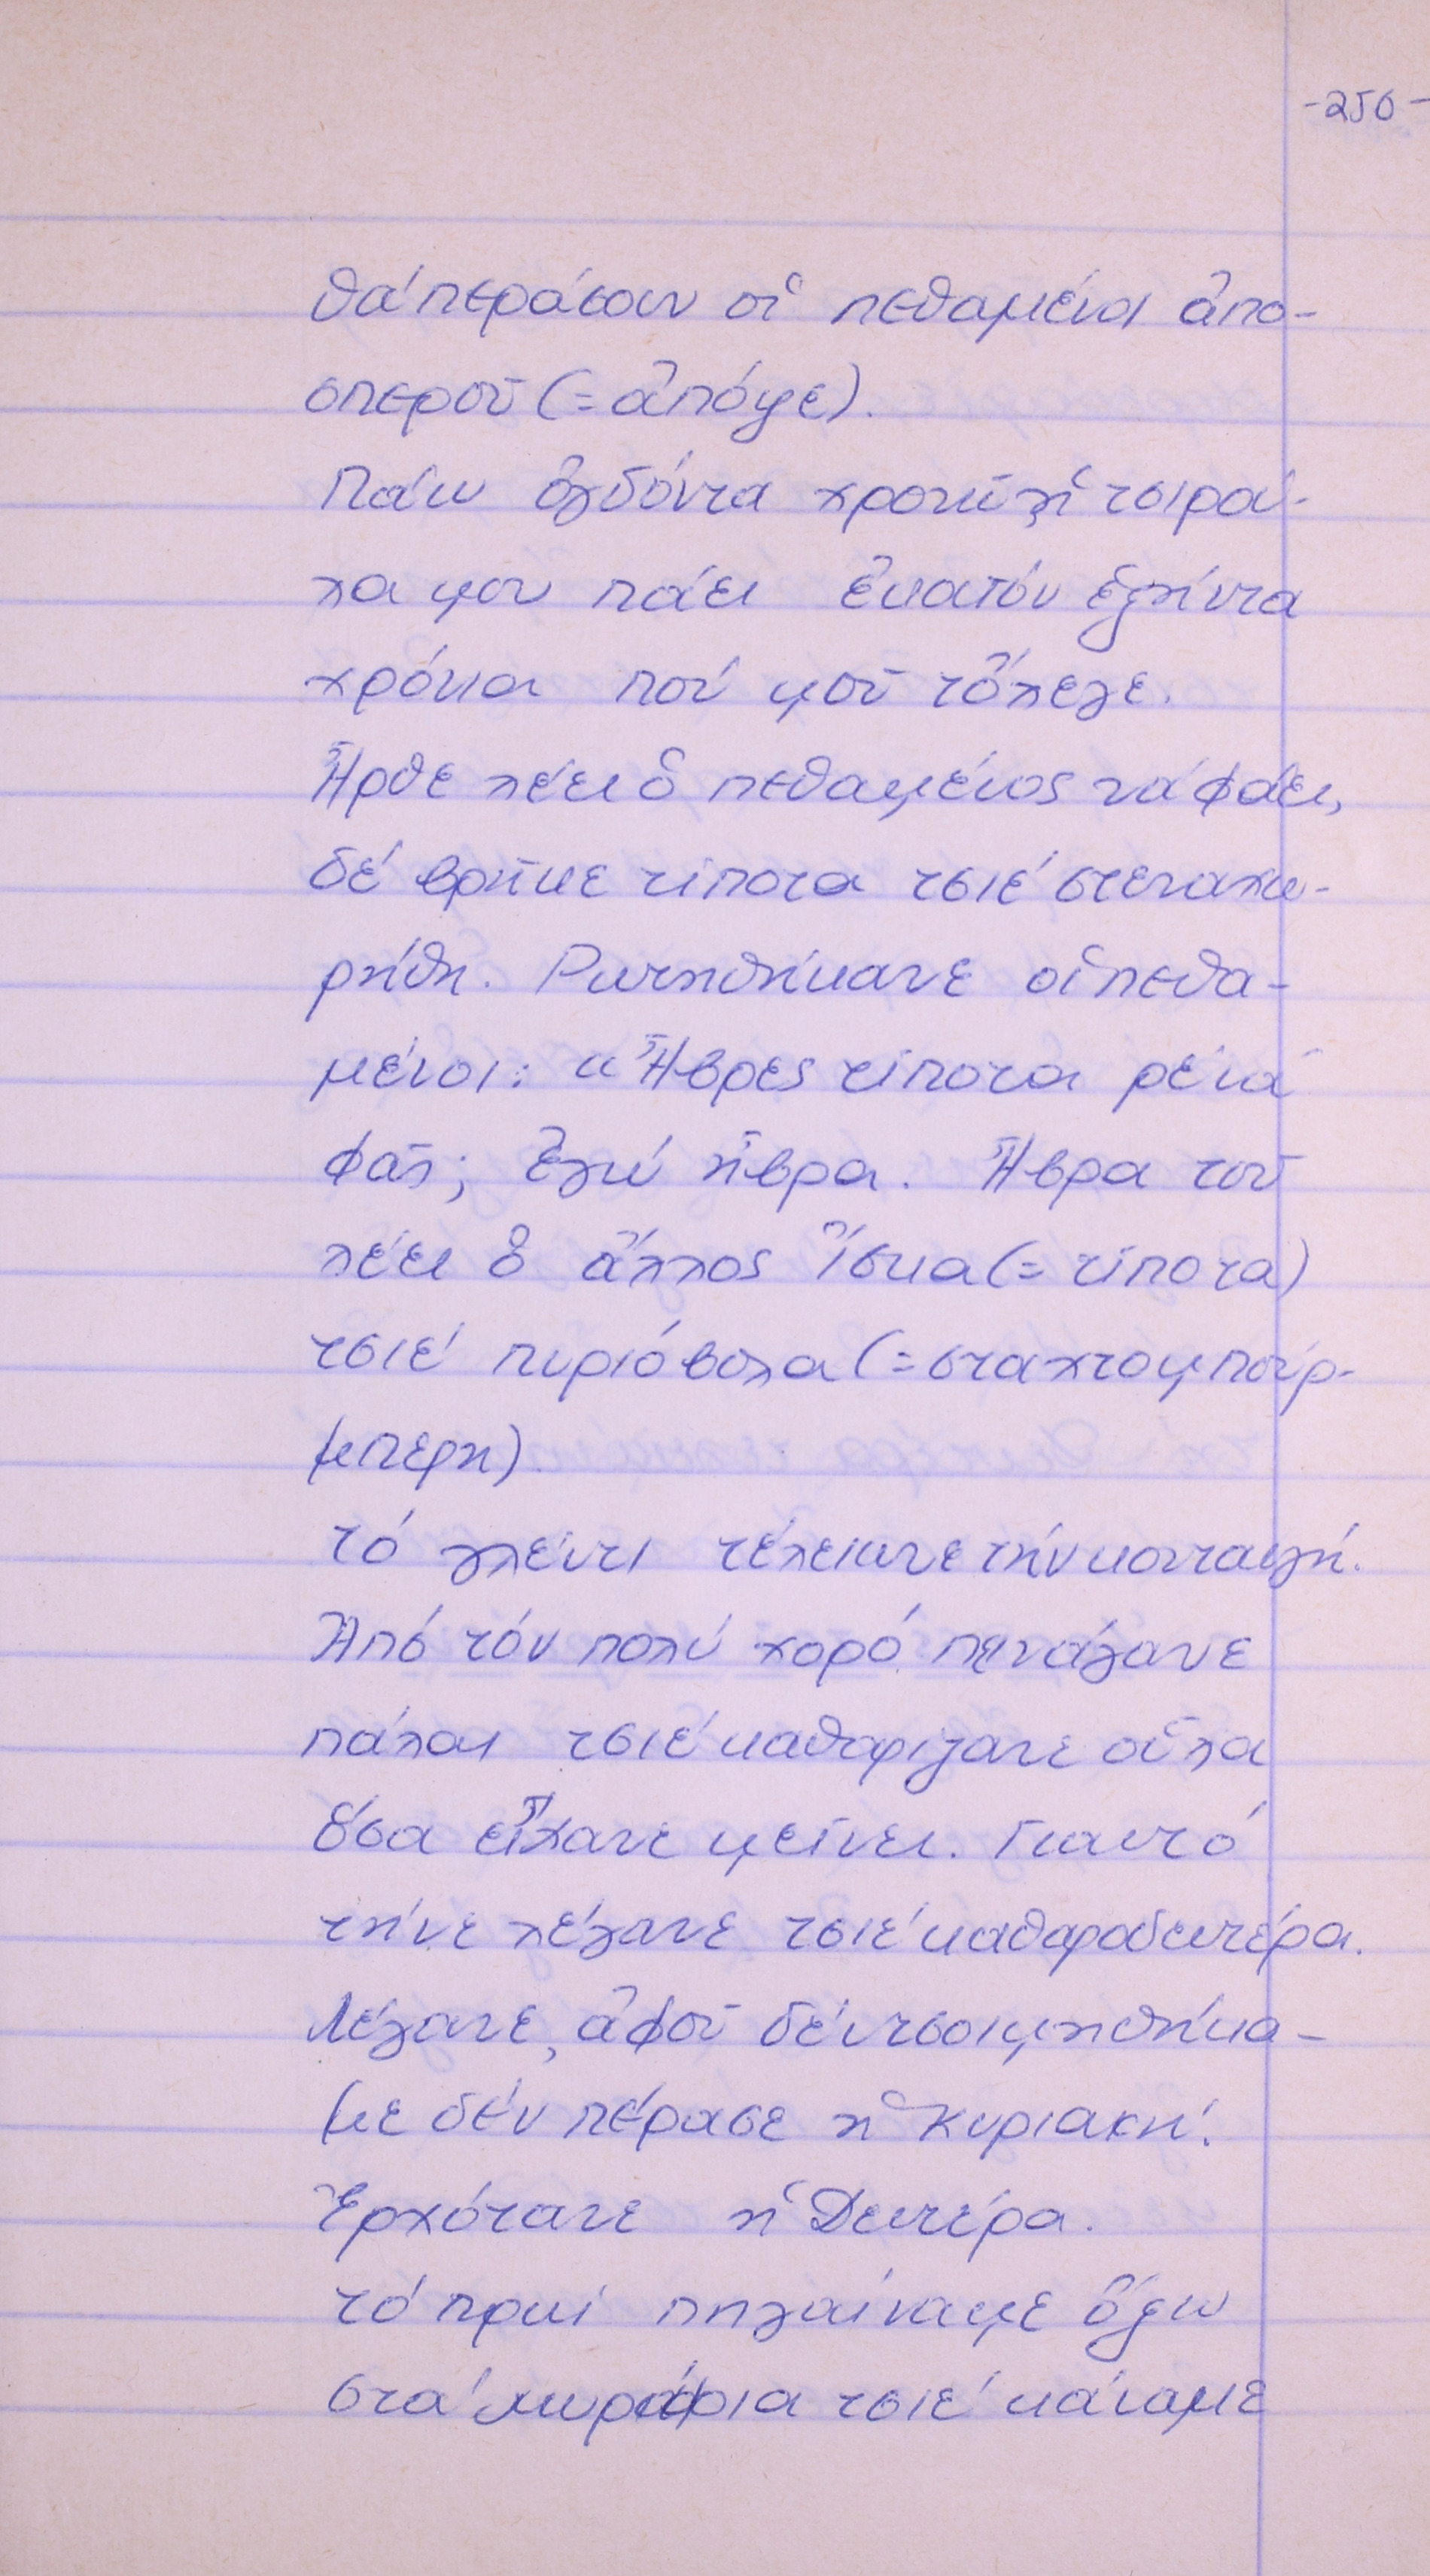 -250-
θά περάσουν οἱ πεθαμένοι ἀπο-
σπεροῦ (=ἀπόψε).
Πάω ὀγδόντα χρονῶ ἡ τσιρού-
λα μου πάει ἑκατόν ἑξήντα
χρόνια πού μοῦ τὄλεγε.
Ἦρθε λέει ὁ πεθαμένος νά φάει,
δέ βρῆκε τίποτα τσιέ στεναχω-
ρήθη. Ρωτηθήκανε οἱ πεθα-
μένοι: "Ἦβρες τίποτα ρέ νά
φᾶς; Ἐγώ ἦβρα. Ἦβρα τοῦ
λέει ὁ ἄλλος ἴσκα (= τίποτα)
τσιέ πυριόβολα (=σταχτομπούρ-
μπερη)
τό γλέντι τέλειωνε τήν κονταυγή.
Ἀπό τόν πολύ χορό πεινάγανε
πάλαι τσιέ καθαρίζανε οὗλα
ὅσα εἴχανε μείνει. Γιαυτό
τήνε λέγανε τσιέ καθαροδευτέρα.
Λέγανε, ἀφοῦ δέν τσοιμηθήκα-
με δέν πέρασε ἡ Κυριακή!
Ἐρχότανε ἡ Δευτέρα.
τό πρωί πηγαίναμε ὄξω
στά χωράφια τσιέ κάναμε